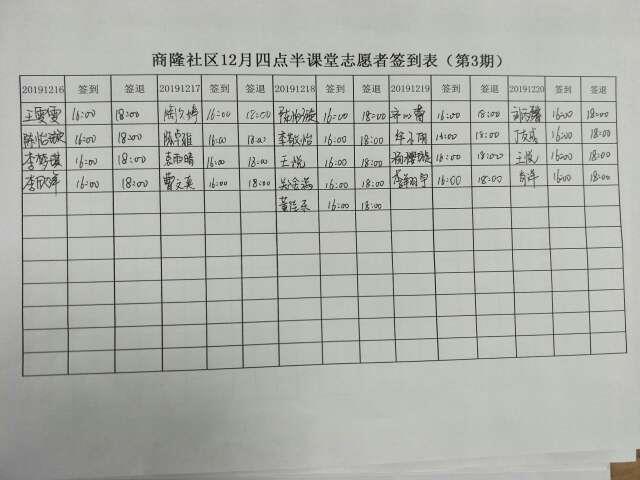 商隆社区12月四点半课堂志愿者签到表（第3期）
20191216 签到 签退 20191217 签到 签退 20191218 签到 签退 20191219 签到 签退 20191220 签到 签退
王雯雯 16:00 18:00 16:00 18:00 16:00 18:00 16:00 18:00 16:00 18:00
陈怡璇 16:00 18:00 陈卓雅 16:00 18:00 李敏怡 16:00 18:00 16:00 18:00 16:00 18:00
李梦琪 16:00 18:00 袁雨晴 16:00 18:00 王悦 16:00 18:00 16:00 18:00 王悦 16:00 18:00
16:00 18:00 曹文英 16:00 18:00 16:00 18:00 16:00 18:00 16:00 18:00
黄佳乐 16:00 18:00